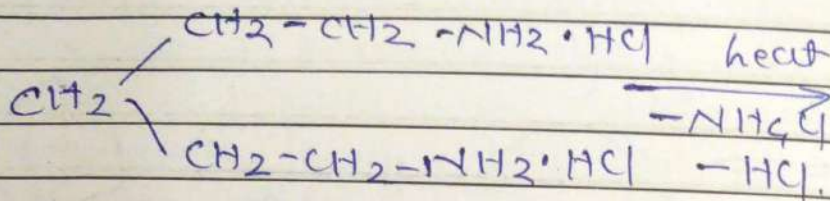 CH2-CH2-NH2·HCl heat
CH2
-NH4Cl
CH2-CH2-NH2·HCl -HCl.